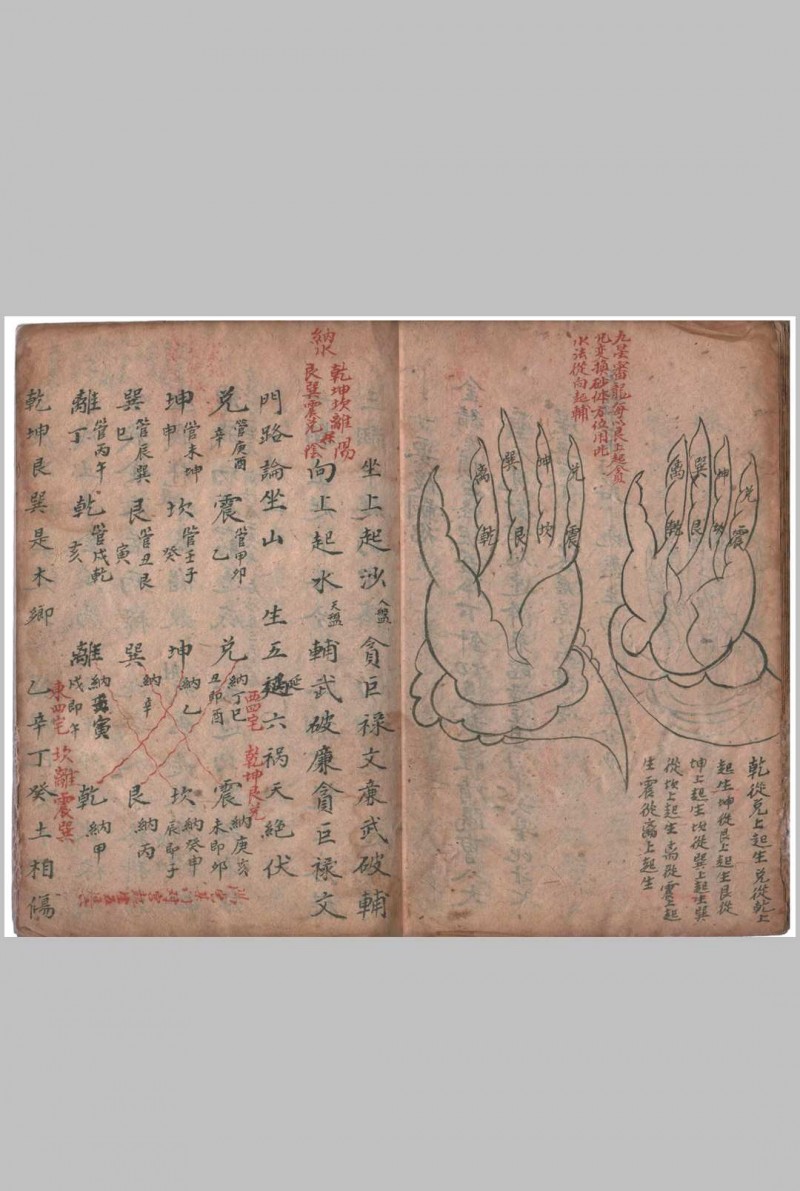 九星審龍每以艮上起貪
兄变換砂体方位用此
水法從向起輔
兌
震
坤
坎
巽
艮
离
乾
兌
震
坤
坎
巽
艮
离
乾
乾從兌上起生兌從乾上
起生坤從艮上起生艮從
坤上起生坎從巽上起生巽
從坎上起生离從震上起
生震從离上起生
坐上起沙 人盤 貪巨禄文廉武破輔
納水
乾坤坎離陽
艮巽震兌陰
向上起水 天盤 輔武破廉貪巨禄文
門路論坐山 生五延六祸天絶伏
兌 管庚酉辛 震 管甲卯乙 兌 納丁巳丑即酉 震 納庚亥未即卯
西四宅 乾坤艮兌
坤 管未坤申 坎 管壬子癸 坤 納乙 坎 納癸申辰即子
巽 管辰巽巳 艮 管丑艮寅 巽 納辛 艮 納丙
離 管丙午丁 乾 管戌乾亥 離 納寅戌即午 乾 納甲
東四宅 坎離震巽
乾坤艮巽是木卿 乙辛丁癸土相傷